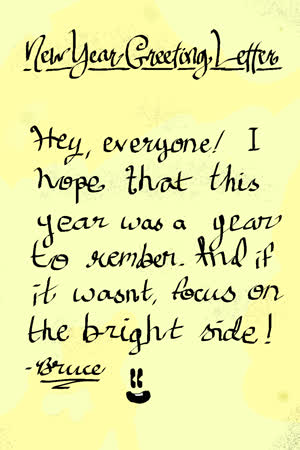 New Year Greeting Letter
Hey, everyone! I
hope that this
year was a year
to rember. And if
it wasnt, focus on
the bright side!
-Bruce